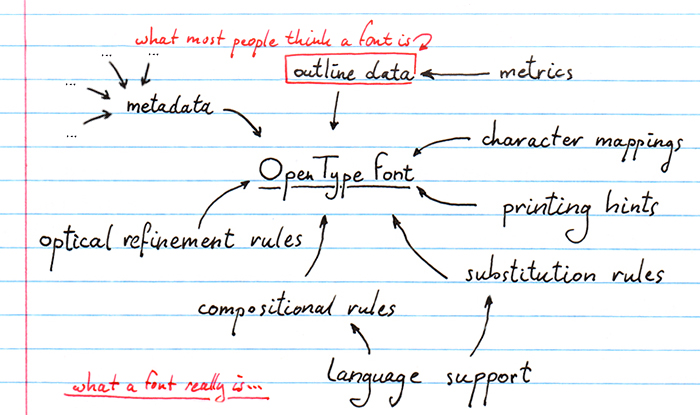 what most people think a font is
outline data
metrics
...
...
...
...
metadata
character mappings
OpenType font
printing hints
optical refinement rules
substitution rules
compositional rules
language support
what a font really is...